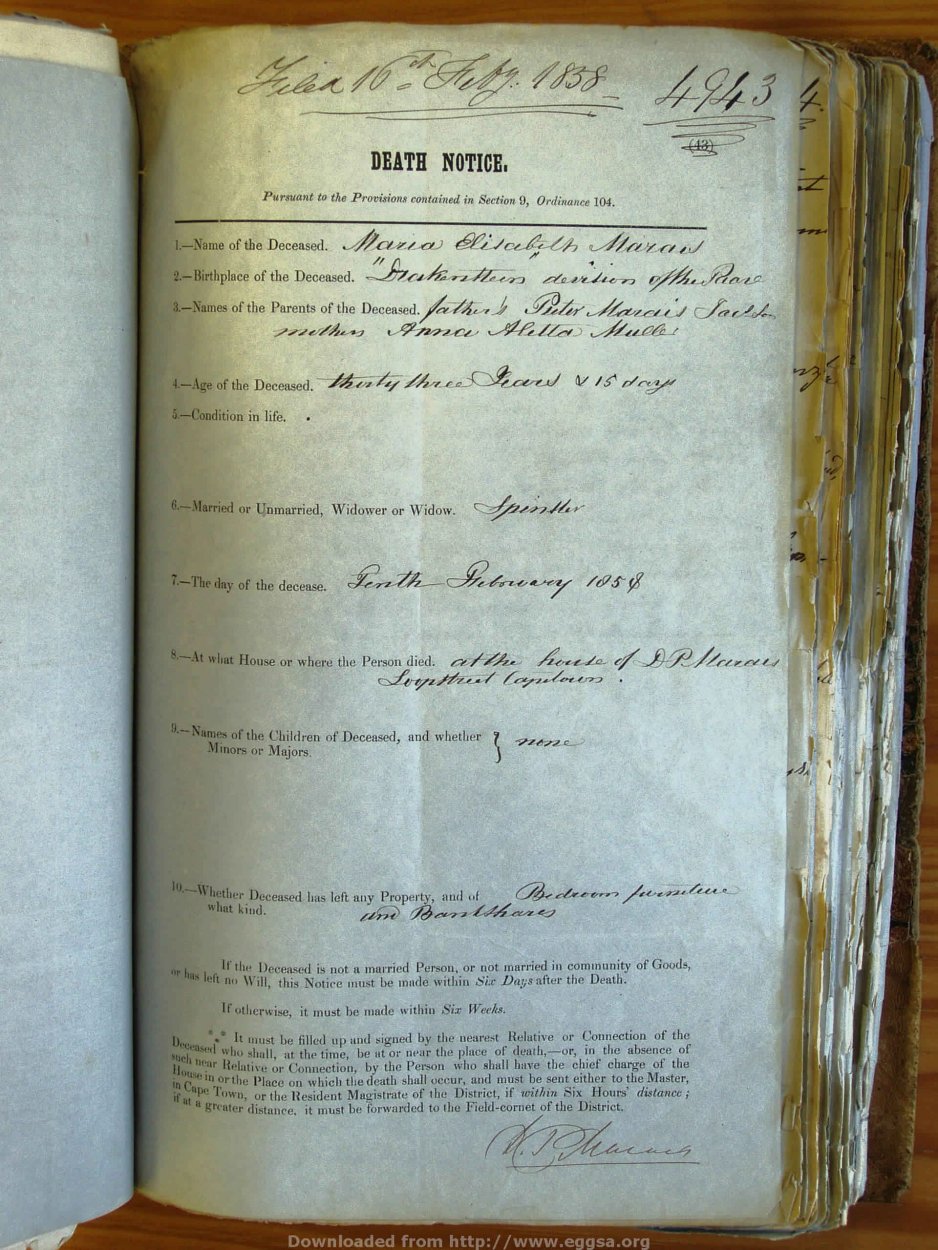 Filed 16th Feby. 1858
4943
(43)
DEATH NOTICE.
Pursuant to the Provisions contained in Section 9, Ordinance 104.
1.—Name of the Deceased. Maria Elisabeth Marais
2.—Birthplace of the Deceased. "Drakenstein" devision of the Paarl
3.—Names of the Parents of the Deceased. father's Pieter Marais
mothers Anna Aletta Muller
4.—Age of the Deceased. thirty three Years & 15 days
5.—Condition in life.
6.—Married or Unmarried, Widower or Widow. Spinster
7.—The day of the decease. Tenth February 1858
8.—At what House or where the Person died. at the house of D P Marais
Loopstreet Capetown.
9.—Names of the Children of Deceased, and whether } none
Minors or Majors.
10.—Whether Deceased has left any Property, and of Bedroom furniture
what kind. and Bankshares
If the Deceased is not a married Person, or not married in community of Goods,
or has left no Will, this Notice must be made within Six Days after the Death.
If otherwise, it must be made within Six Weeks.
*** It must be filled up and signed by the nearest Relative or Connection of the
Deceased who shall, at the time, be at or near the place of death,—or, in the absence of
such near Relative or Connection, by the Person who shall have the chief charge of the
House in or the Place on which the death shall occur, and must be sent either to the Master,
in Cape Town, or the Resident Magistrate of the District, if within Six Hours' distance;
if at a greater distance, it must be forwarded to the Field-cornet of the District.
D. P. Marais
Downloaded from http://www.eggsa.org